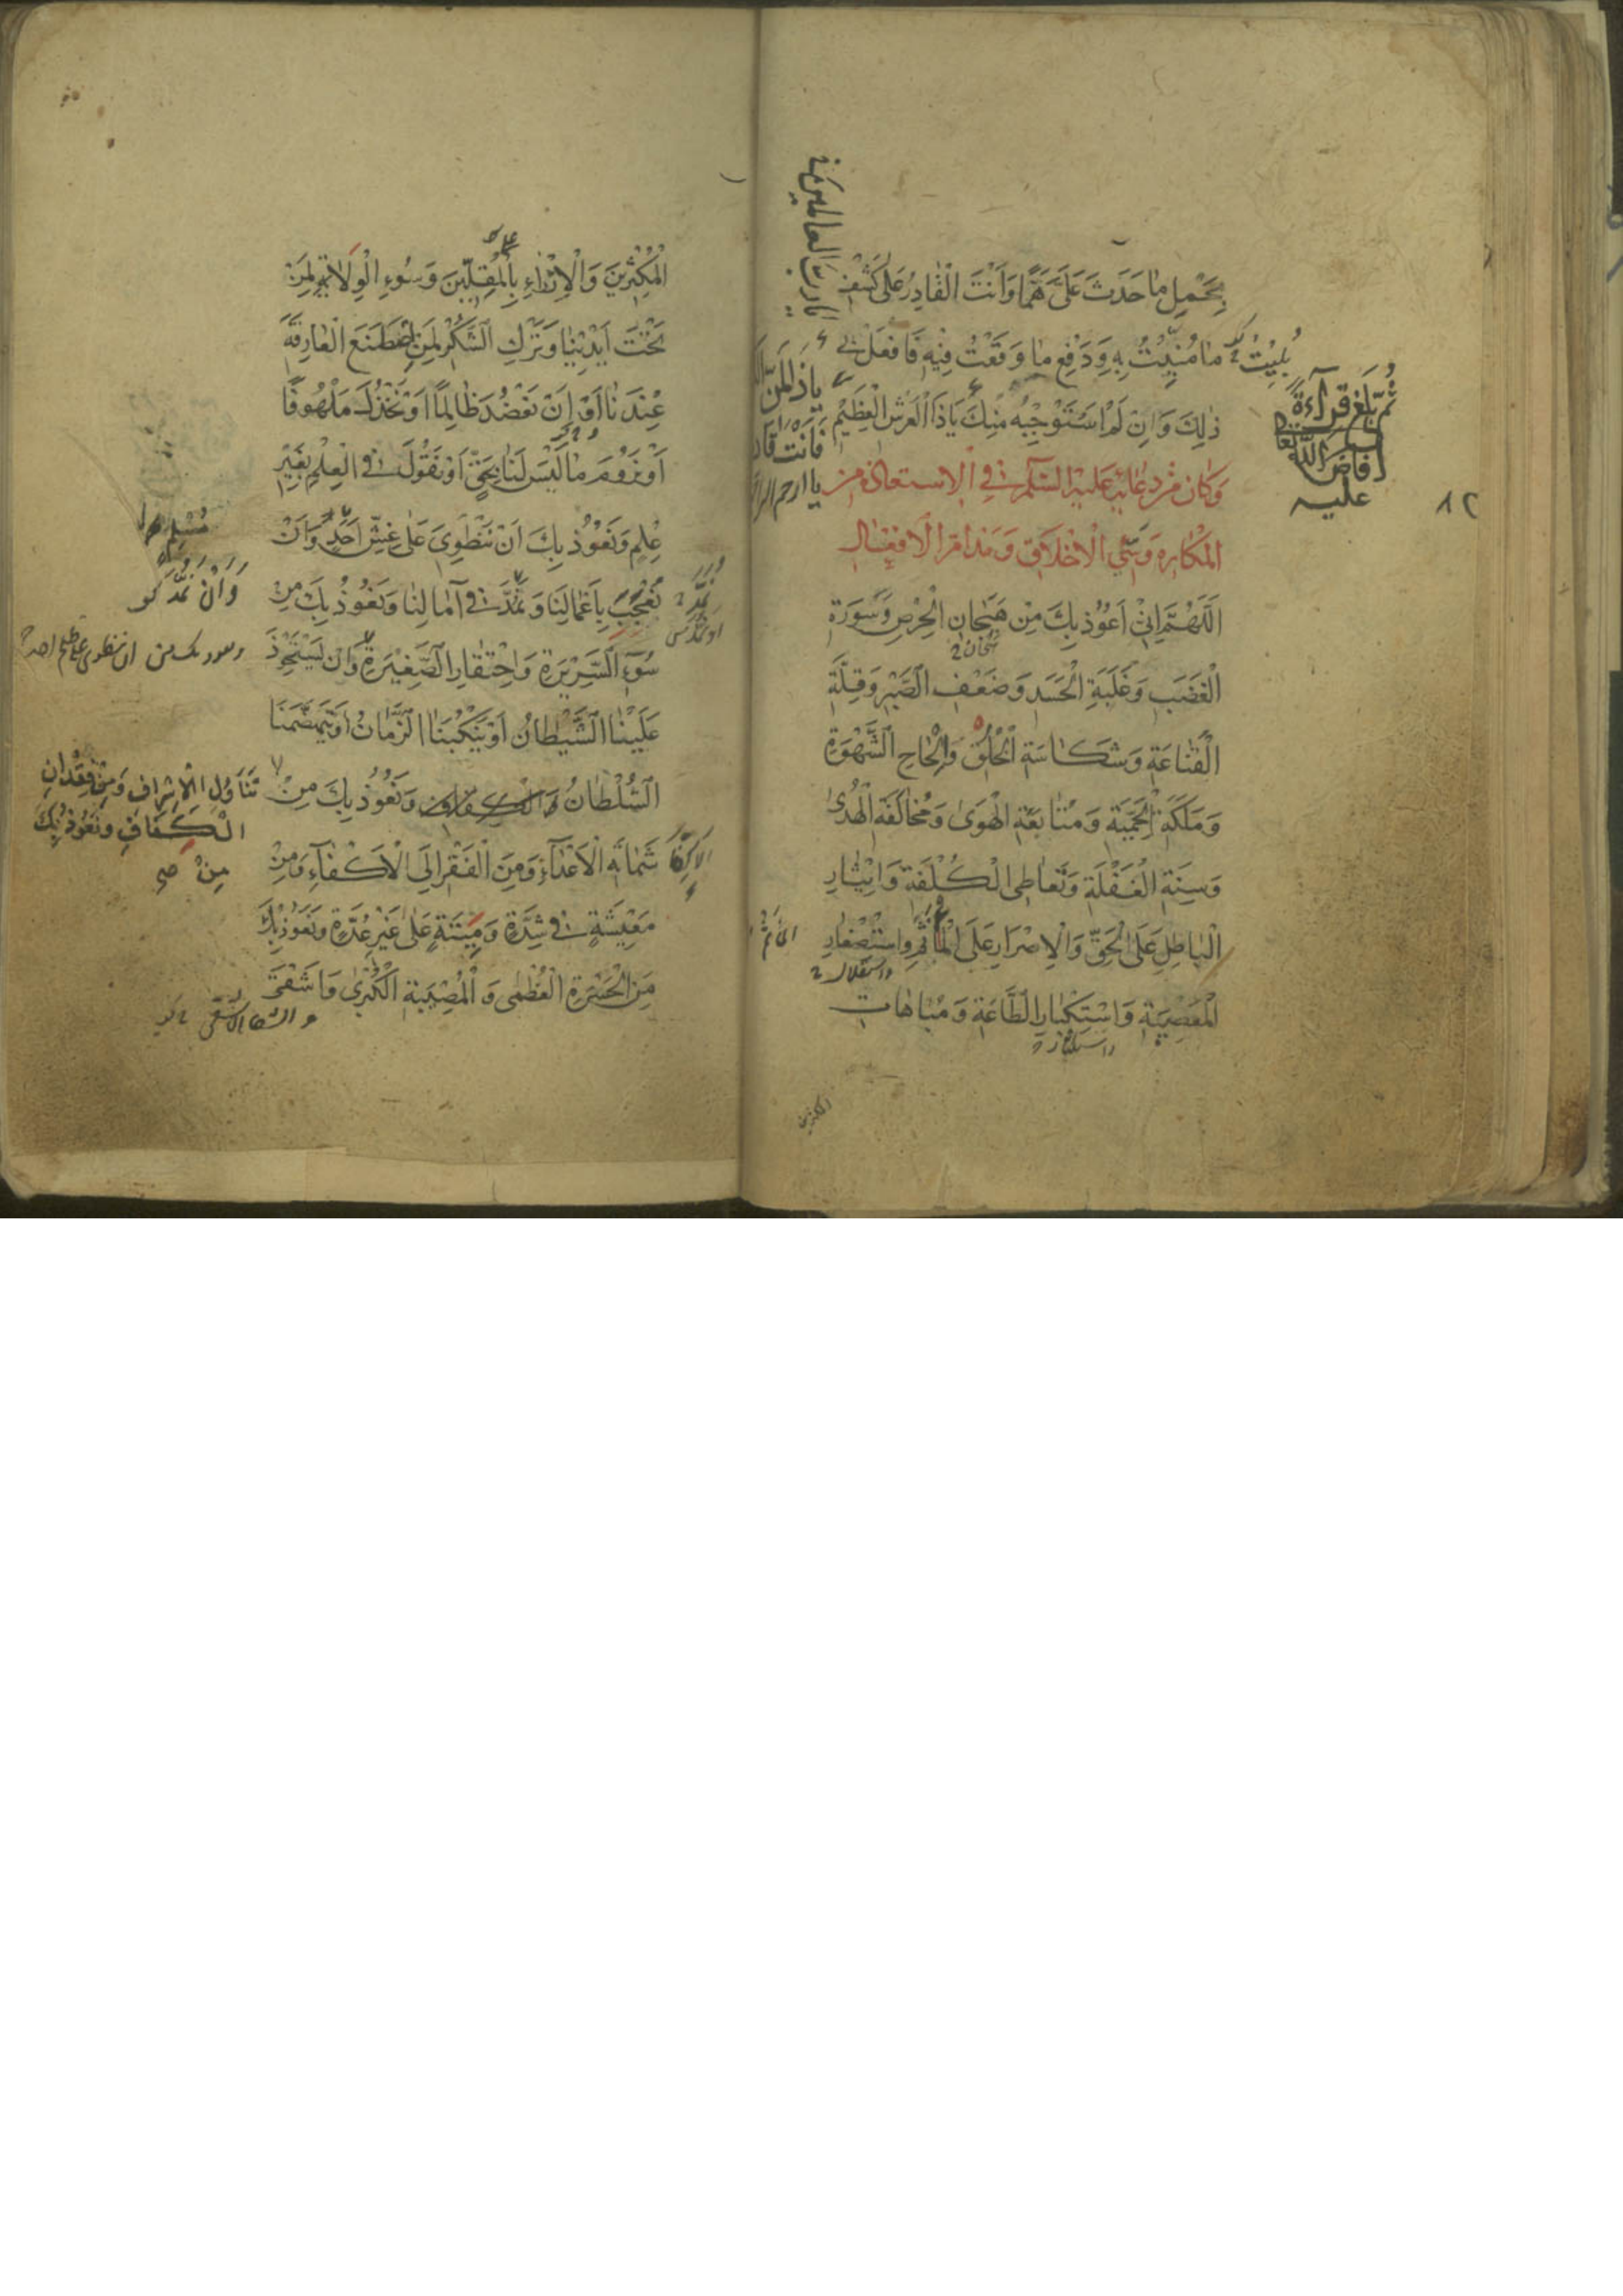 بِحَمْلِ مَا حَدَثَ عَلَيَّ هَمًّا وَأَنْتَ الْقَادِرُ عَلَى كَشْفِ
مَا مُنِيتُ بِهِ وَدَفْعِ مَا وَقَعْتُ فِيهِ فَافْعَلْ بِي
ذٰلِكَ وَإِنْ لَمْ أَسْتَوْجِبْهُ مِنْكَ يَا ذَا الْعَرْشِ الْعَظِيمِ
وَكَانَ مِنْ دُعَائِهِ عَلَيْهِ السَّلَامُ فِي الْاِسْتِعَاذَةِ مِنَ
الْمَكَارِهِ وَسَيِّئِ الْأَخْلَاقِ وَمَذَامِّ الْأَفْعَالِ
اَللّٰهُمَّ إِنِّي أَعُوذُ بِكَ مِنْ هَيَجَانِ الْحِرْصِ وَسَوْرَةِ
الْغَضَبِ وَغَلَبَةِ الْحَسَدِ وَضَعْفِ الصَّبْرِ وَقِلَّةِ
الْقَنَاعَةِ وَشَكَاسَةِ الْخُلُقِ وَإِلْحَاحِ الشَّهْوَةِ
وَمَلَكَةِ الْحَمِيَّةِ وَمُتَابَعَةِ الْهَوَىٰ وَمُخَالَفَةِ الْهُدَىٰ
وَسِنَةِ الْغَفْلَةِ وَتَعَاطِي الْكُلْفَةِ وَإِيثَارِ
الْبَاطِلِ عَلَى الْحَقِّ وَالْإِصْرَارِ عَلَى الْمَأْثَمِ وَاسْتِصْغَارِ
واستقلال
الْمَعْصِيَةِ وَاسْتِكْبَارِ الطَّاعَةِ وَمُبَاهَاتِ
المكثرين
بُلِيتُ
يَا ذَا الْمَنِّ
يا ارحم
يا رب العالمين
ثُمَّ بَلَغَ قِرَاءَةً
أَفَاضَ اللهُ تعالى
عليه
٨٢
الْمُكْثِرِينَ وَالْإِزْرَاءِ بِالْمُقِلِّينَ وَسُوءِ الْوِلَايَةِ لِمَنْ
تَحْتَ أَيْدِينَا وَتَرْكِ الشُّكْرِ لِمَنِ اصْطَنَعَ الْعَارِفَةَ
عِنْدَنَا أَوْ أَنْ نَعْضُدَ ظَالِمًا أَوْ نَخْذُلَ مَلْهُوفًا
أَوْ نَرُومَ مَا لَيْسَ لَنَا بِحَقٍّ أَوْ نَقُولَ فِي الْعِلْمِ بِغَيْرِ
عِلْمٍ وَنَعُوذُ بِكَ أَنْ نَنْطَوِيَ عَلَى غِشِّ أَحَدٍ وَأَنْ
نُعْجَبَ بِأَعْمَالِنَا وَنَمُدَّ فِي آمَالِنَا وَنَعُوذُ بِكَ مِنْ
سُوءِ السَّرِيرَةِ وَاحْتِقَارِ الصَّغِيرَةِ وَأَنْ يَسْتَحْوِذَ
عَلَيْنَا الشَّيْطَانُ أَوْ يَنْكُبَنَا الزَّمَانُ أَوْ يَتَهَضَّمَنَا
السُّلْطَانُ وَنَعُوذُ بِكَ مِنْ
شَمَاتَةِ الْأَعْدَاءِ وَمِنَ الْفَقْرِ إِلَى الْأَكْفَاءِ وَمِنْ
مَعِيشَةٍ فِي شِدَّةٍ وَمِيتَةٍ عَلَى غَيْرِ عُدَّةٍ وَنَعُوذُ بِكَ
مِنَ الْحَسْرَةِ الْعُظْمَى وَالْمُصِيبَةِ الْكُبْرَى وَأَشْقَى
مُسْلِم
وَأَنْ نَمُدَّ
ونعوذ بك من ان ننطوي على ظلم احد
تَنَاوُلِ الْإِسْرَافِ وَمِنْ فِقْدَانِ
الْكَفَافِ وَنَعُوذُ بِكَ
مِنْ صح